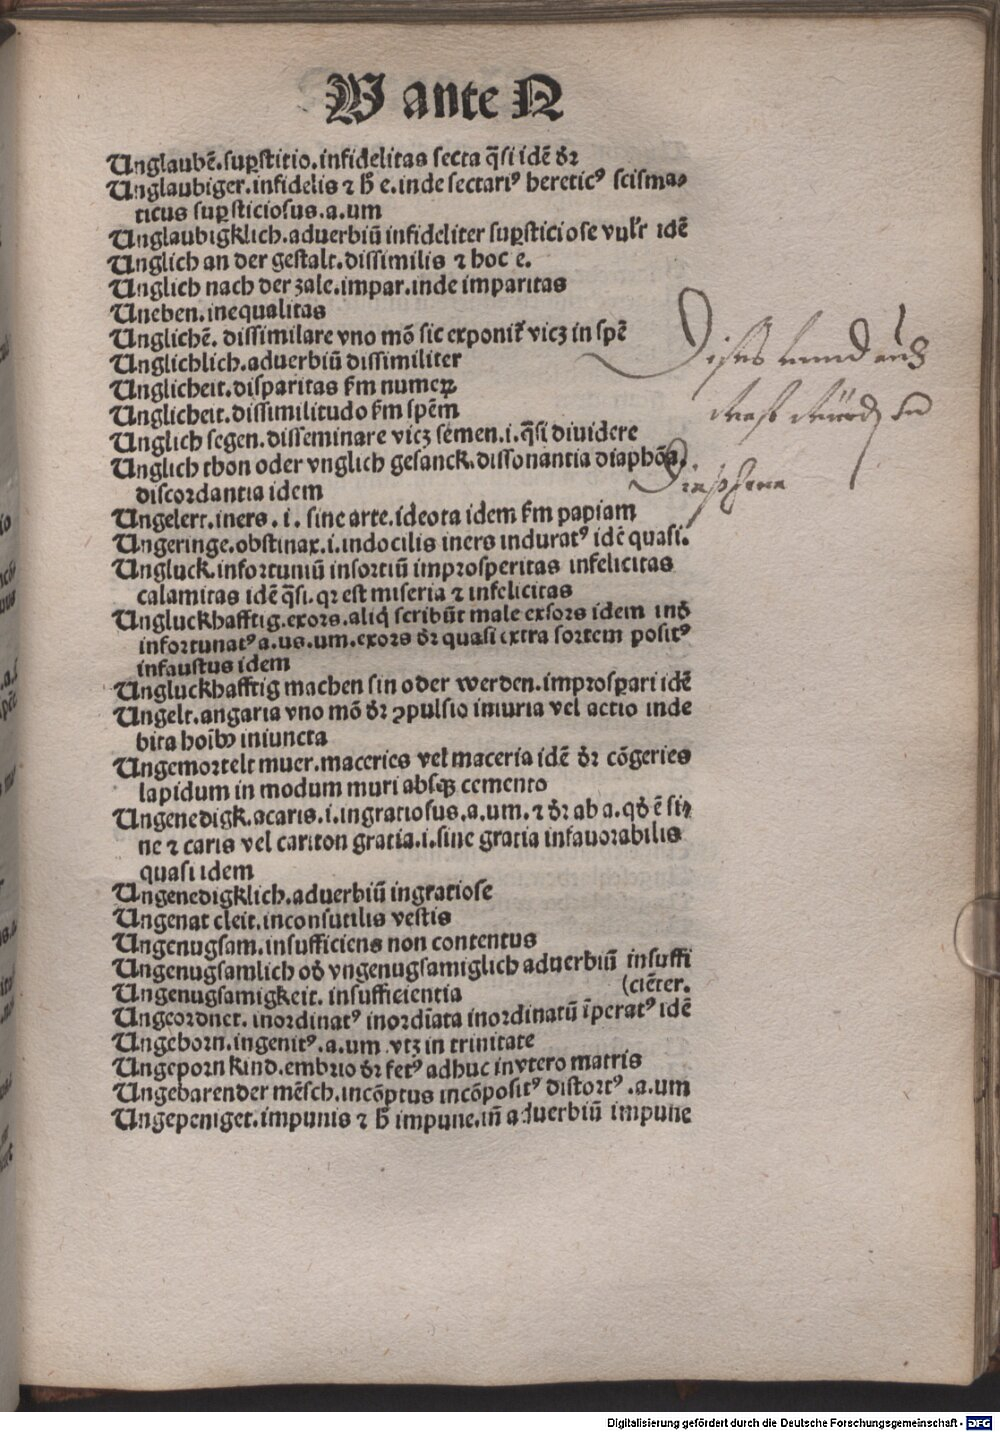 W ante N
Unglaubē.suꝑstitio.infidelitas secta q̄si idē dr̄
Unglaubiger.infidelis ⁊ h̄ e.inde sectariꝰ hereticꝰ scisma⸗
ticus suꝑsticiosus.a.um
Unglaubigklich.aduerbiū infideliter suꝑsticiose vulr̄ idē
Unglich an der gestalt.dissimilis ⁊ hoc e.
Unglich nach der zale.impar.inde imparitas
Uneben.inequalitas
Unglichē. dissimilare vno mō sic exponit᷑ vicꝫ in spē
Unglichlich.aduerbiū dissimiliter
Unglicheit.disparitas ẜm numeꝝ
Unglicheit.dissimilitudo ẜm spēm
Unglich segen.disseminare vicꝫ semen.i.q̄si diuidere
Unglich thon oder vnglich gesanck.dissonantia diaphōa.
discordantia idem
Ungelert.iners.i. sine arte.ideota idem ẜm papiam
Ungeringe.obstinax.i.indocilis iners induratꝰ idē quasi.
Ungluck.infortuniū insortiū improsperitas infelicitas
calamitas idē q̄si.qꝛ est miseria ⁊ infelicitas
Ungluckhafftig.exors.aliq̄ scribūt male exsors idem inđ
infortunatꝰ a.us.um.exors dr̄ quasi extra sortem positꝰ
infaustus idem
Ungluckhafftig machen sin oder werden.improsꝑari idē
Ungelt.angaria vno mō dr̄ ꝯpulsio iniuria vel actio inde
bita hoībꝫ iniuncta
Ungemortelt muer.maceries vel maceria idē dr̄ cōgeries
lapidum in modum muri absqꝫ cemento
Ungenedigk.acaris.i.ingratiosus.a.um.⁊ dr̄ ab a.qđ ē si⸗
ne ⁊ caris vel cariton gratia.i.sine gratia infauorabilis
quasi idem
Ungenedigklich.aduerbiū ingratiose
Ungenat cleit.inconsutilis vestis
Ungenugsam.insufficiens non contentus
Ungenugsamlich ođ vngenugsamiglich aduerbiū insuffi
Ungenugsamigkeit. insufficientia (ciēter.
Ungeordnet. inordinatꝰ inordīata inordinatū īperatꝰ idē
Ungeborn.ingenitꝰ.a.um .vtꝫ in trinitate
Ungeporn kind.embrio dr̄ fetꝰ adhuc in vtero matris
Ungebarender mēsch.incōptus incōpositꝰ distortꝰ .a.um
Ungepeniget.impunis ⁊ h̄ impune.in̄ aduerbiū impune
Digitalisierung gefördert durch die Deutsche Forschungsgemeinschaft - DFG